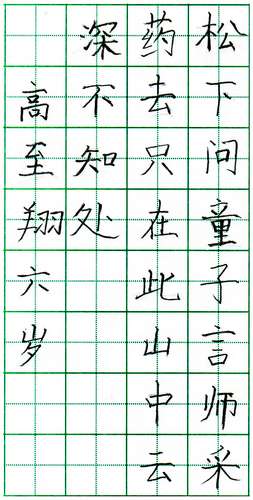 松下问童子言师采
药去只在此山中云
深不知处
高至翔六岁